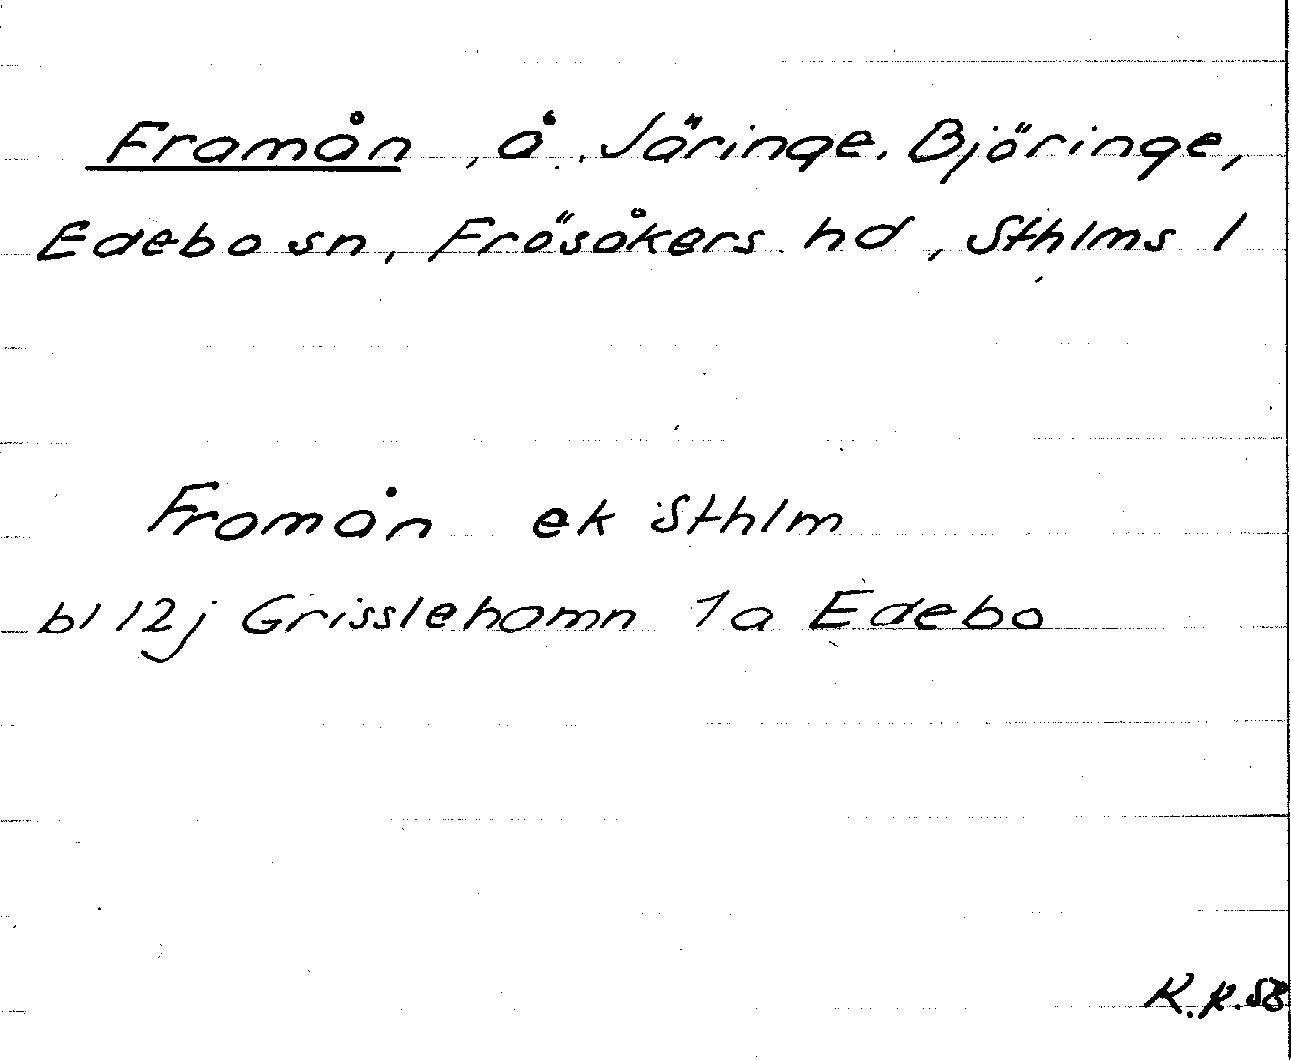 Framån, å, Järinge, Björinge,
Edebo sn, Frösåkers hd, Sthlms l
Framån ek Sthlm
bl 12j Grisslehamn 1a Edebo
K.R.58